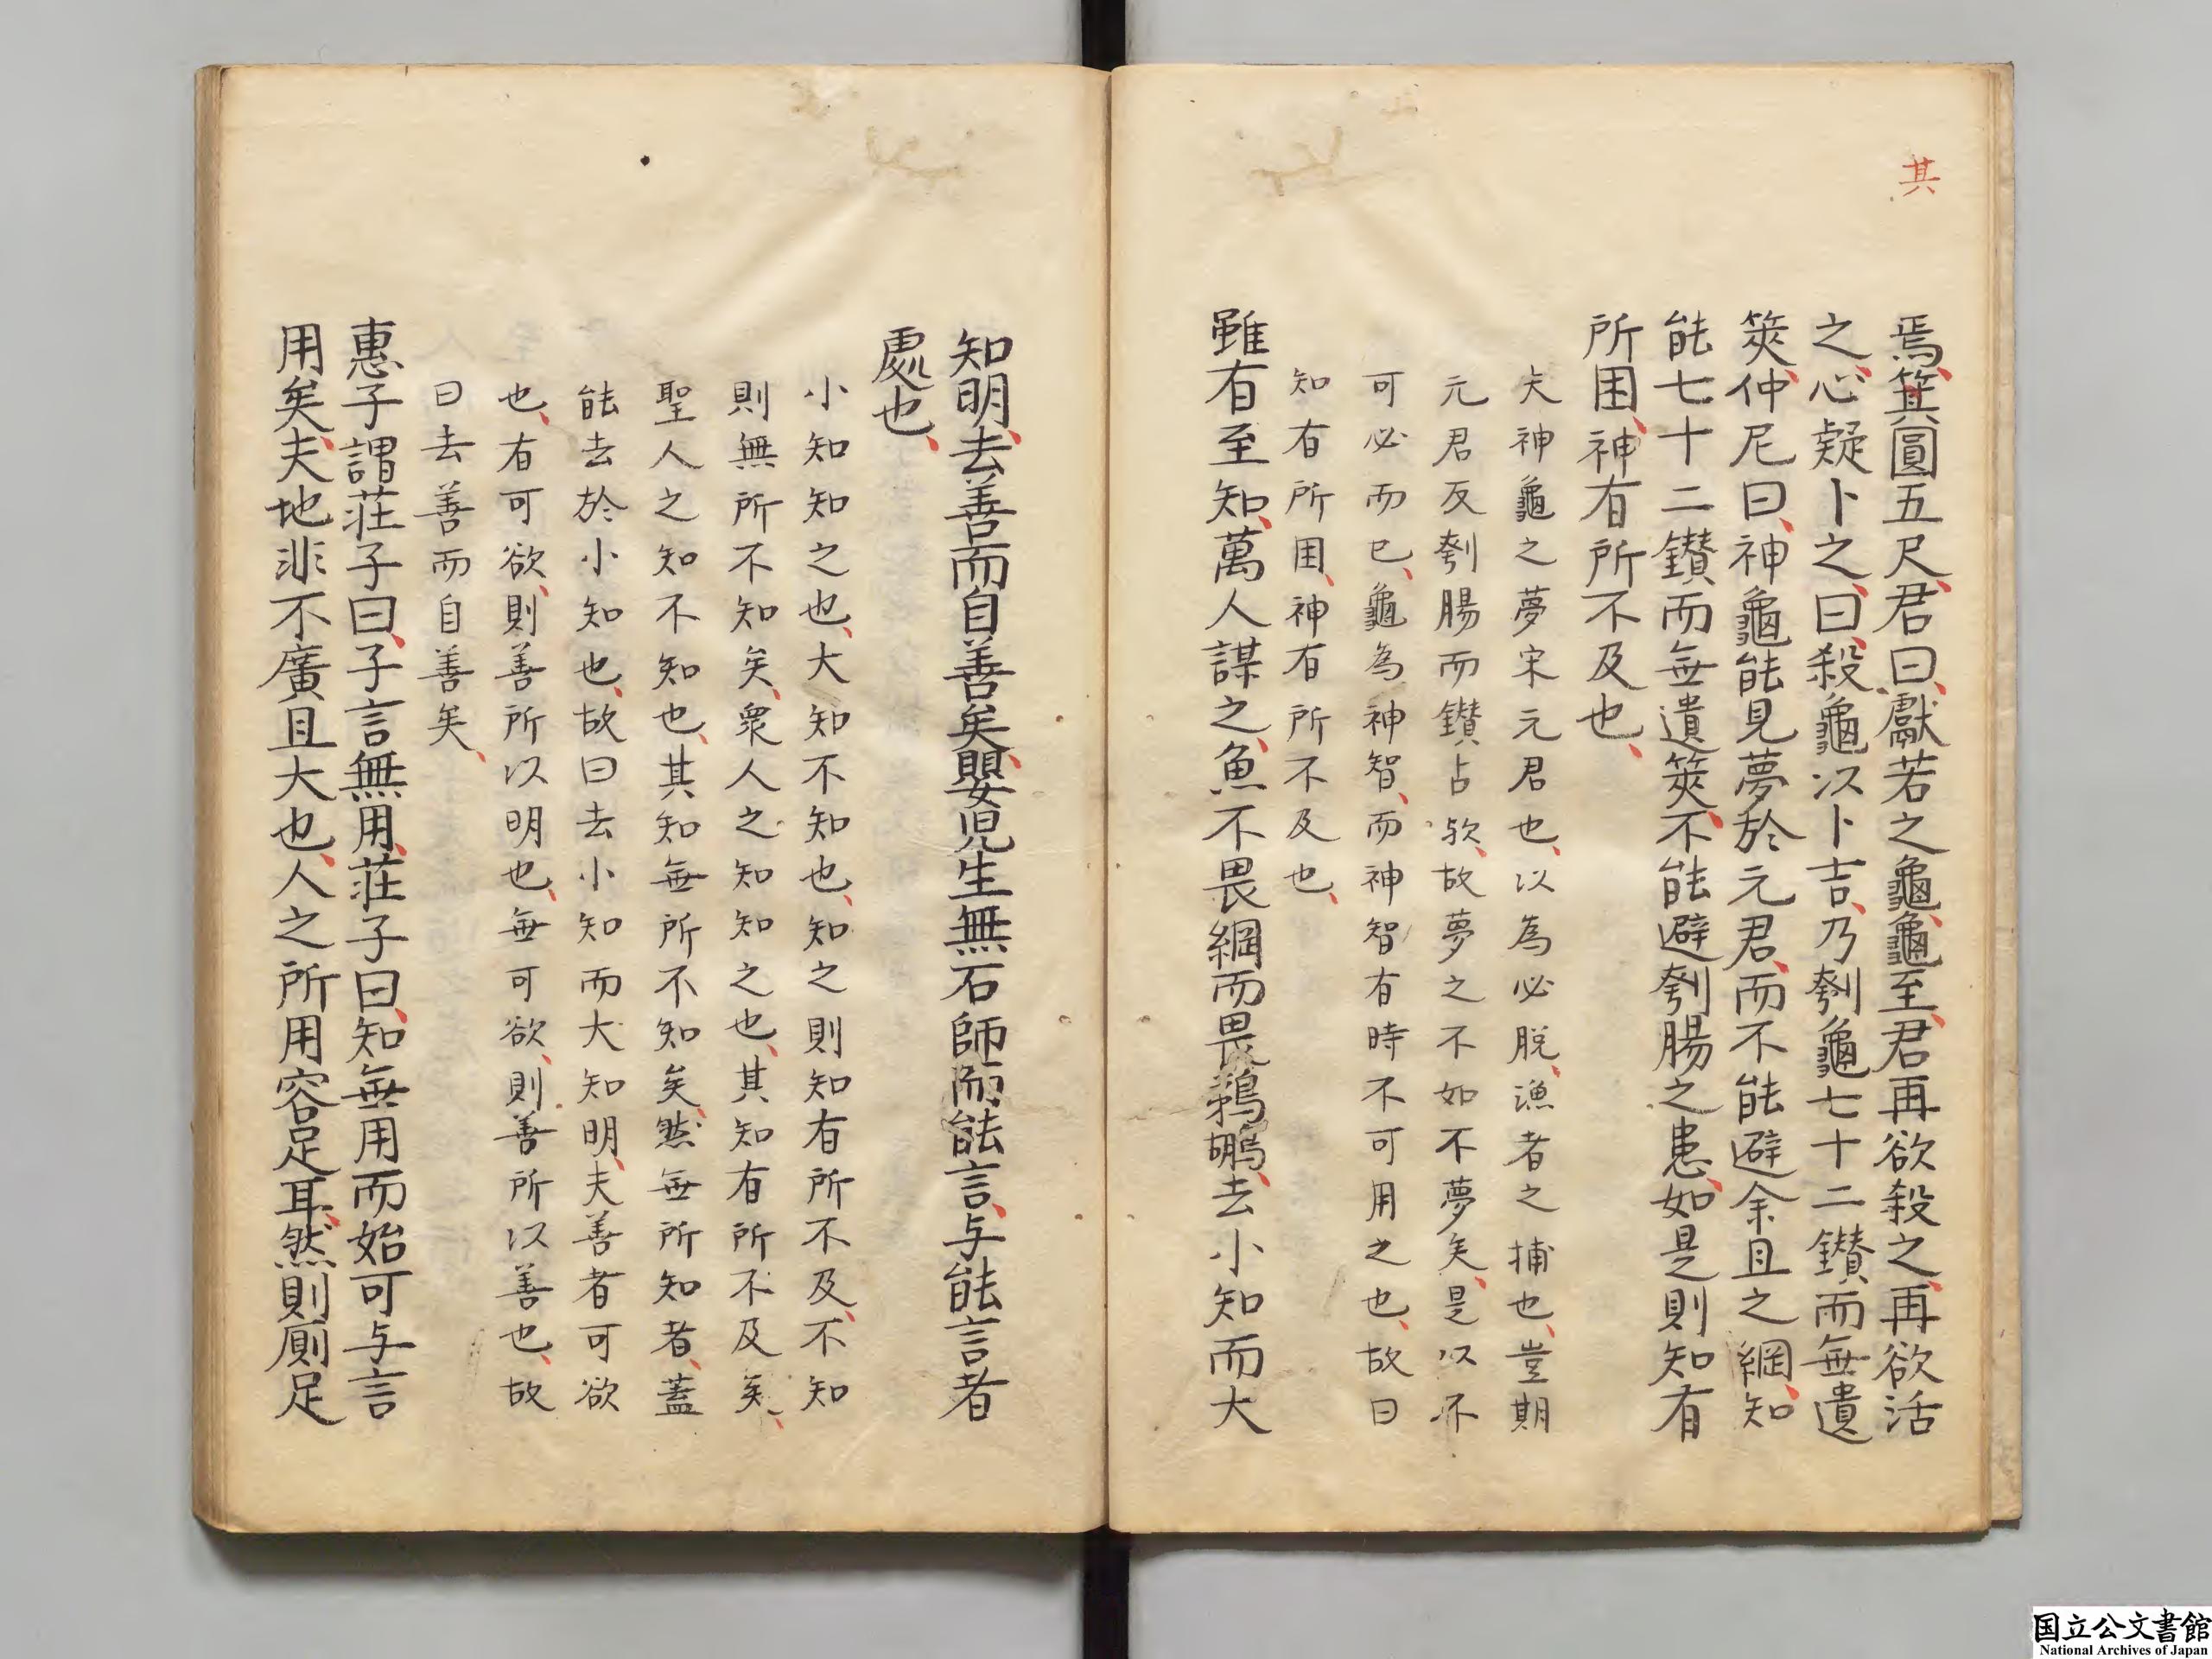 其
焉、箕圓五尺、君曰、獻若之龜、龜至、君再欲殺之、再欲活
之、心疑卜之、曰、殺龜以卜吉、乃刳龜七十二鑽而無遺
筴、仲尼曰、神龜能見夢於元君、而不能避余且之網、知
能七十二鑽而無遺筴、不能避刳腸之患、如是則知有
所困、神有所不及也、
夫神龜之夢宋元君也、以為必脫、漁者之捕也、豈期
元君反刳腸而鑽占欤、故夢之不如不夢矣、是以不
可必而已、龜為神智、而神智有時不可用之也、故曰
知有所困、神有所不及也、
雖有至知、萬人謀之、魚不畏網而畏鵜鶘、去小知而大
知明、去善而自善矣、嬰児生無石師而能言、与能言者
處也、
小知知之也、大知不知也、知之則知有所不及、不知
則無所不知矣、衆人之知知之也、其知有所不及矣、
聖人之知不知也、其知無所不知矣、然無所知者、蓋
能去於小知也、故曰去小知而大知明、夫善者可欲
也、有可欲、則善所以明也、無可欲、則善所以善也、故
曰去善而自善矣、
惠子謂莊子曰、子言無用、莊子曰、知無用而始可与言
用矣、夫地非不廣且大也、人之所用容足耳、然則厠足
国立公文書館
National Archives of Japan